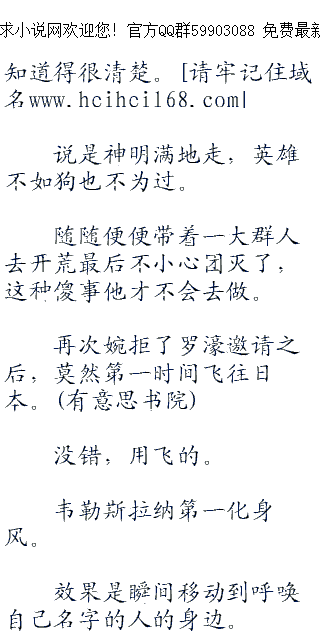 求小说网欢迎您! 官方QQ群59903088 免费最新
知道得很清楚。[请牢记住域
名www.hcihci168.com|
说是神明满地走，英雄
不如狗也不为过。
随随便便带着一大群人
去开荒最后不小心团灭了，
这种傻事他才不会去做。
再次婉拒了罗濠邀请之
后，莫然第一时间飞往日
本。(有意思书院)
没错，用飞的。
韦勒斯拉纳第一化身
风。
效果是瞬间移动到呼唤
自己名字的人的身边。